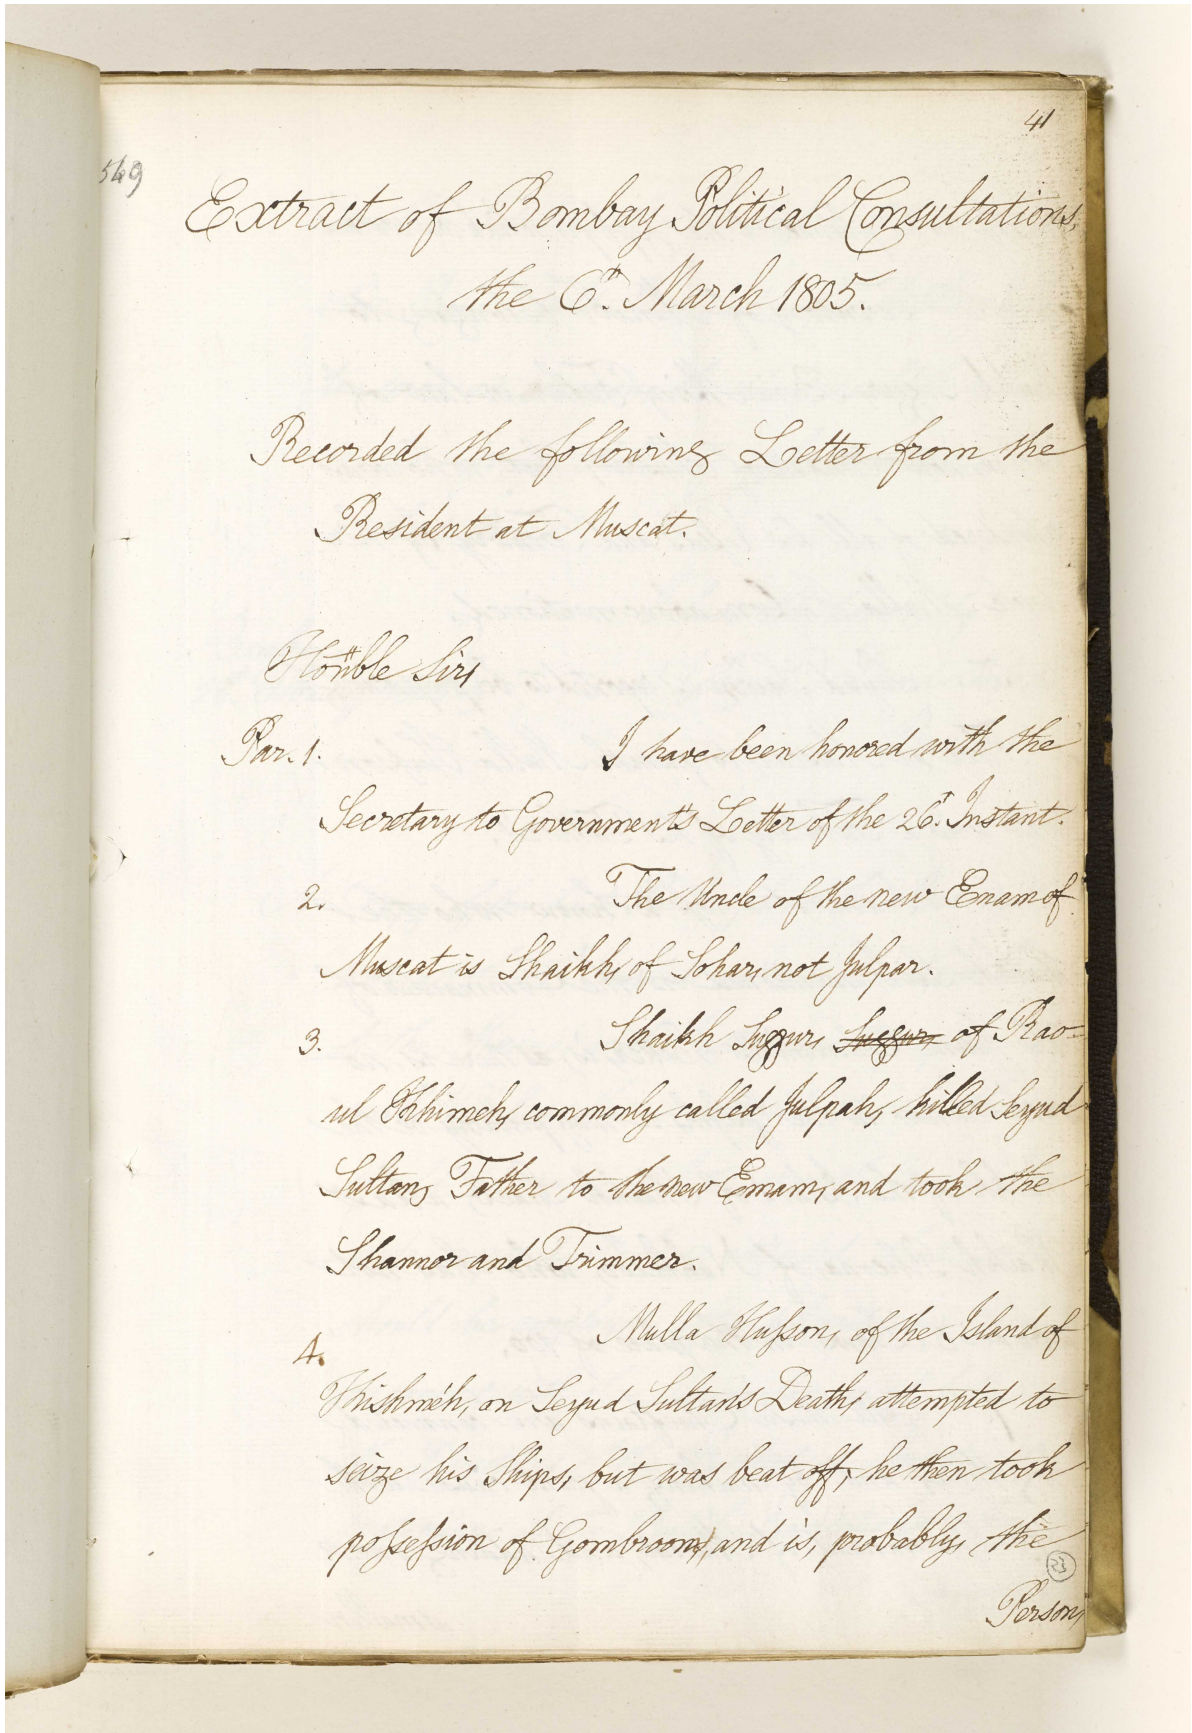 41
549
Extract of Bombay Political Consultations,
the 6th. March 1805.
Recorded the following Letter from the
Resident at Muscat.
Hon'ble Sir,
Par. 1. I have been honored with the
Secretary to Government's Letter of the 26th. Instant.
2. The Uncle of the new Enam of
Muscat is Shaikh, of Sohar, not Julpar.
3. Shaikh Suggur, Suggur, of Rao-
ul Khimeh, commonly called Julpah, killed Seyud
Sultan, Father to the new Emam, and took the
Shannor and Trimmer.
4. Mulla Husson, of the Island of
Kishmeh, on Seyud Sultan's Death, attempted to
seize his Ships, but was beat off; he then took
possession of Gombroon, and is, probably, the
23
Person,